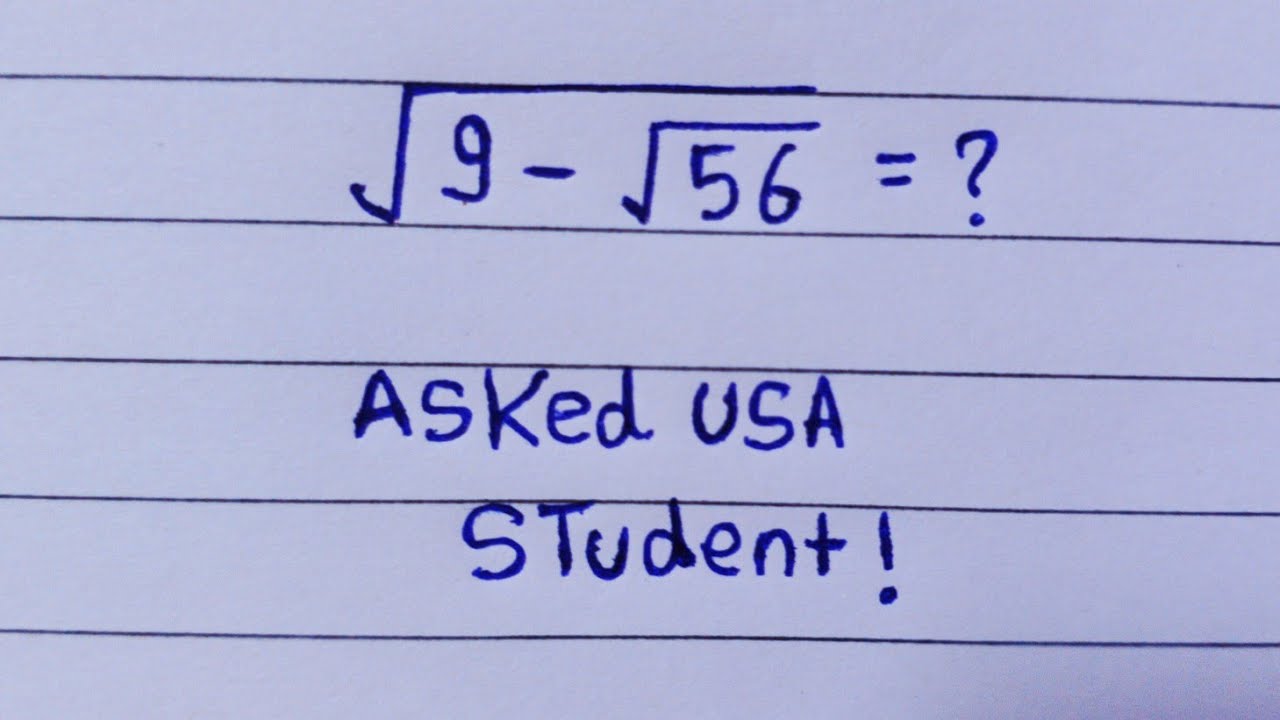 √(9 - √56) = ?
ASKed USA
STudent!